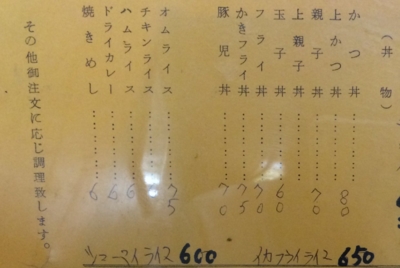 (丼物)
かつ丼
上かつ丼………80
親子丼………70
上親子丼
玉子丼………60
フライ丼………70
かきフライ丼………50
豚児丼………70
オムライス………75
チキンライス
ハムライス………6
ドライカレー………6
焼きめし………6
その他御注文に応じ調理致します。
イカフライライス 650
シューマイライス 600